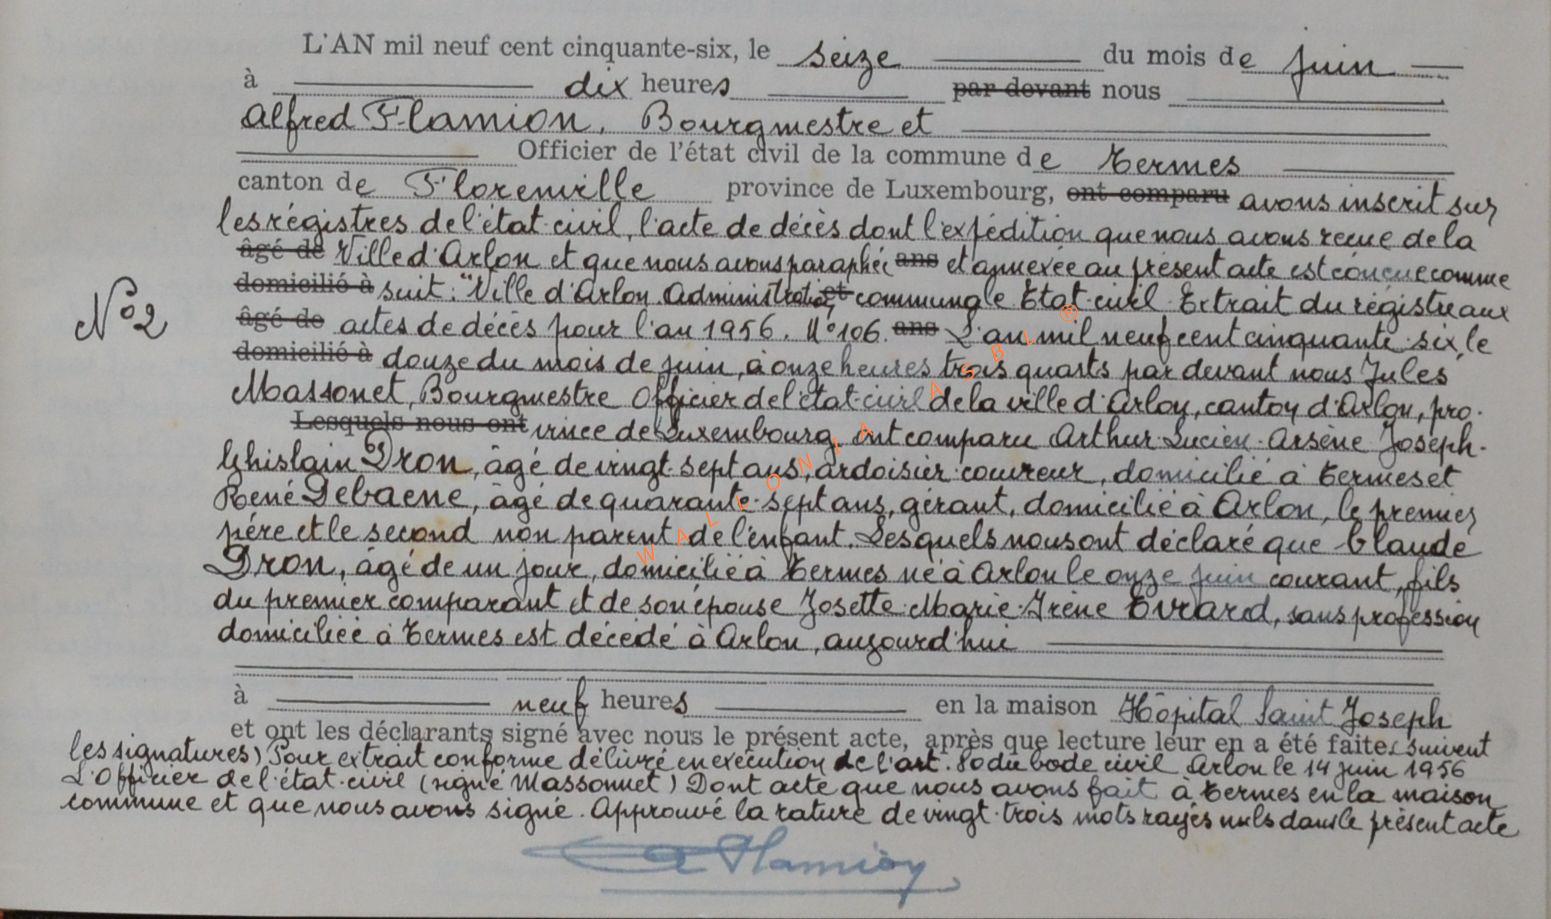 L'AN mil neuf cent cinquante-six, le seize du mois de juin
à dix heures par devant nous
Alfred Flamion, Bourgmestre et
Officier de l'état civil de la commune de Termes
canton de Florenville province de Luxembourg, ont comparu avons inscrit sur
les régistres de l'état-civil, l'acte de décès dont l'expédition que nous avons recue de la
âgé de Ville d'Arlon et que nous avons paraphée ans et annexée au présent acte est concue comme
domicilié à suit: "Ville d'Arlon Administration et communale Etat-civil Extrait du régistre aux
N°2
âgé de actes de décès pour l'an 1956. N°106. ans L'an mil neuf cent cinquante-six, le
domicilié à douze du mois de juin, à onze heures trois quarts par devant nous Jules
Massonet, Bourgmestre Officier de l'état-civil de la ville d'Arlon, canton d'Arlon, pro-
Lesquels nous ont vince de Luxembourg, ont comparu Arthur-Lucien-Arsène-Joseph-
Ghislain Dron, âgé de vingt-sept ans, ardoisier-couvreur, domicilié à Termes et
René Debaene, âgé de quarante-sept ans, gérant, domicilié à Arlon, le premier
père et le second non parent de l'enfant. Lesquels nous ont déclaré que Claude
Dron, âgé de un jour, domicilié à Termes né à Arlon le onze juin courant, fils
du premier comparant et de son épouse Josette-Marie-Irène Evrard, sans profession
domiciliée à Termes est décédé à Arlon, aujourd'hui
à neuf heures en la maison Hôpital Saint Joseph
et ont les déclarants signé avec nous le présent acte, après que lecture leur en a été faite. (suivent
les signatures) Pour extrait conforme délivré en exécution de l'art. 80 du Code civil Arlon le 14 juin 1956
L'Officier de l'état-civil (signé Massonnet) Dont acte que nous avons fait à Termes en la maison
commune et que nous avons signé. Approuvé la rature de vingt-trois mots rayés nuls dans le présent acte
A Flamion
WALLONIA ASBL ®